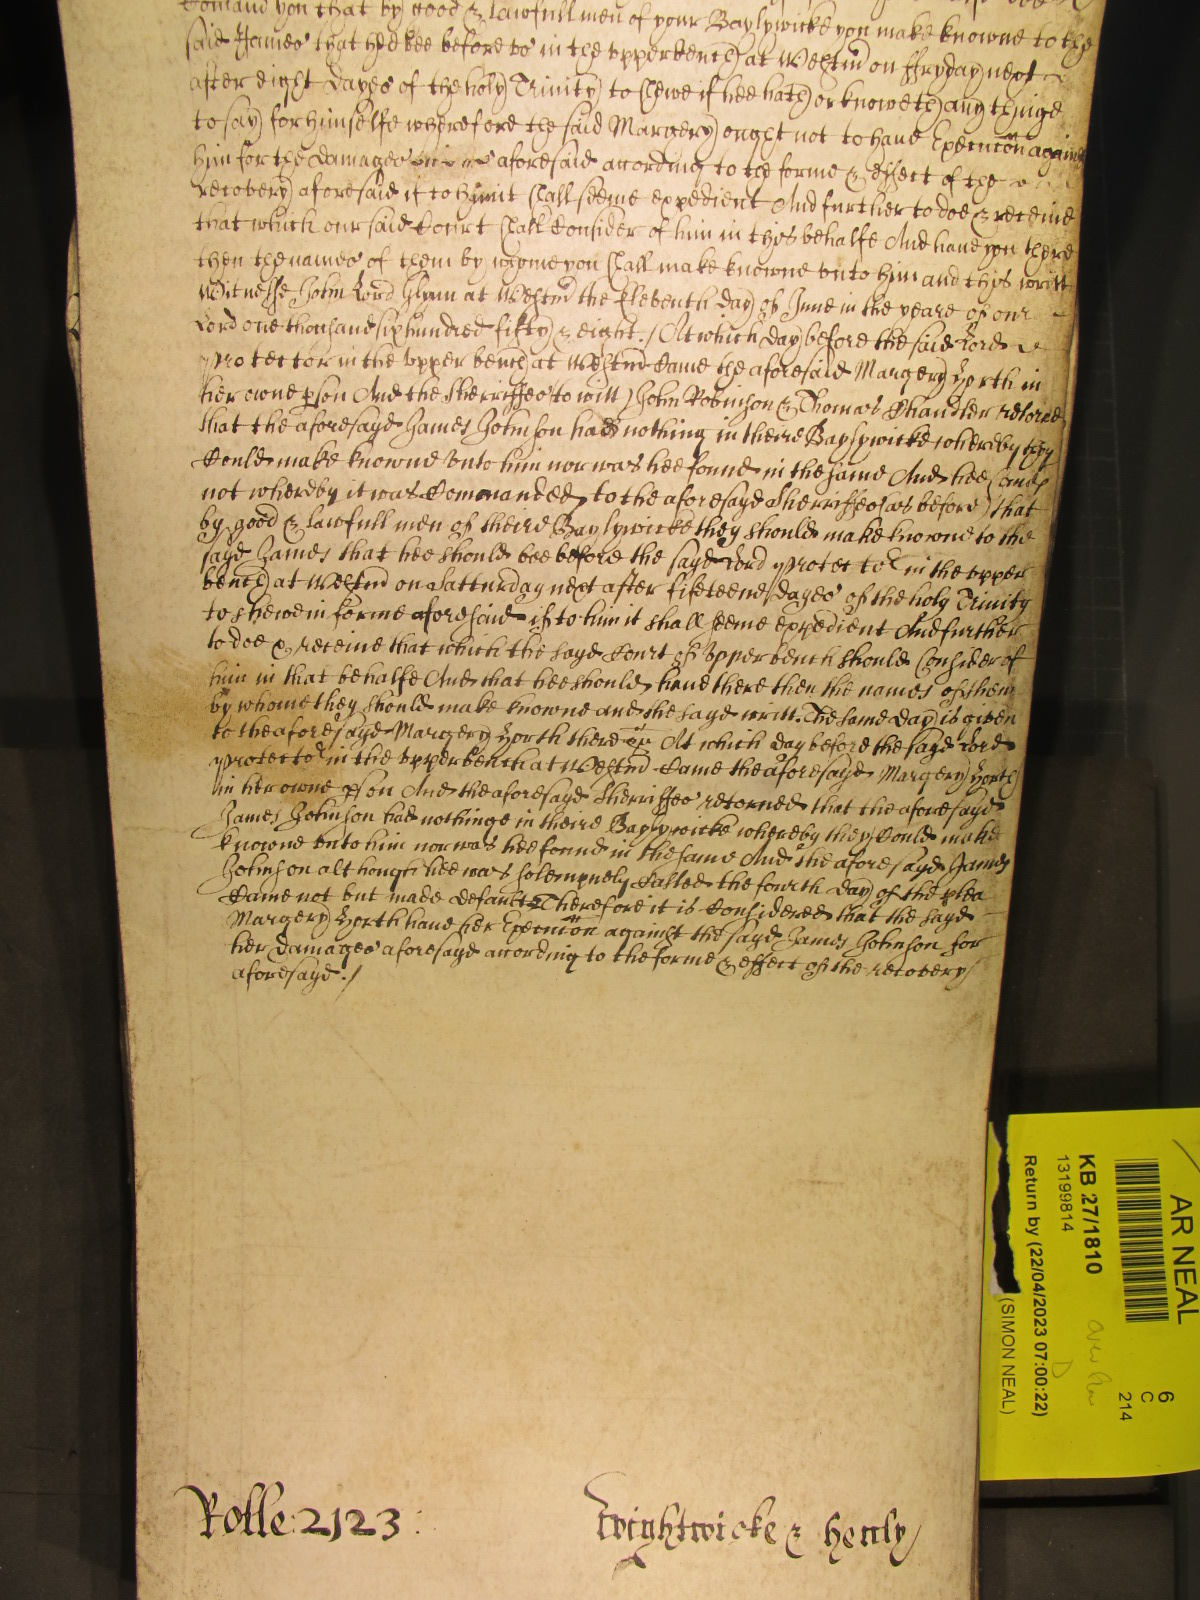 Comand you that by good & lawfull men of your Baylywicke you make knowne to the
said James that hee bee before vs in the vpper bench at Westmr on ffryday next
after eight dayes of the holy Trinity to shewe if hee hath or knoweth any thinge
to say for himselfe wherefore the said Margery ought not to haue Execucõn against
him for the damages aforesaid according to the forme & effect of the
recovery aforesaid if to him it shall seeme expedient And further to doe & receiue
that which our said Court shall Consider of him in this behalfe And haue you there
then the names of them by whome you shall make knowne vnto him and this writt
Witnesse John Lord Glynn at Westmr the Eleventh day of June in the yeare of our
Lord one thousand six hundred fifty & eight./ At which day before the said Lord
Protector in the vpper bench at Westmr Came the aforesaid Margery Yorth in
her owne pson And the Sherriffes to witt John Robinson & Thomas Chandler retorne
that the aforesayd James Johnson had nothing in theire Baylywicke whereby they
Could make knowne vnto him nor was hee found in the same And hee Came
not whereby it was Comanded to the aforesayd Sherriffes as before that
by good & lawfull men of theire Baylywicke they should make knowne to the
sayd James that hee should bee before the sayd Lord Protector in the vpper
bench at Westmr on Satturday next after fifeteene dayes of the holy Trinity
to shewe in forme aforesaid if to him it shall seeme expedient And further
to doe & receiue that which the sayd Court of vpper bench should Consider of
him in that behalfe And that hee should haue there then the names of them
by whome they should make knowne and the sayd writt. The same day is given
to the aforesayd Margery Yorth there &c At which day before the sayd Lord
Protector in the vpper bench at Westmr Came the aforesayd Margery Yorth
in her owne pson And the aforesayd Sherriffes retorned that the aforesayd
James Johnson had nothinge in theire Baylywicke whereby they Could make
knowne vnto him nor was hee found in the same And the aforesayd James
Johnson although hee was solempnely Called the fourth day of the plea
Came not but made default Therefore it is Considered that the sayd
Margery Yorth haue her Execucõn against the sayd James Johnson for
her damages aforesayd according to the forme & effect of the recovery
aforesayd./
Rolle: 2123:
Wightwicke & Henly
AR NEAL
6
C
214
KB 27/1810
13199814
Return by (22/04/2023 07:00:22)
(SIMON NEAL)